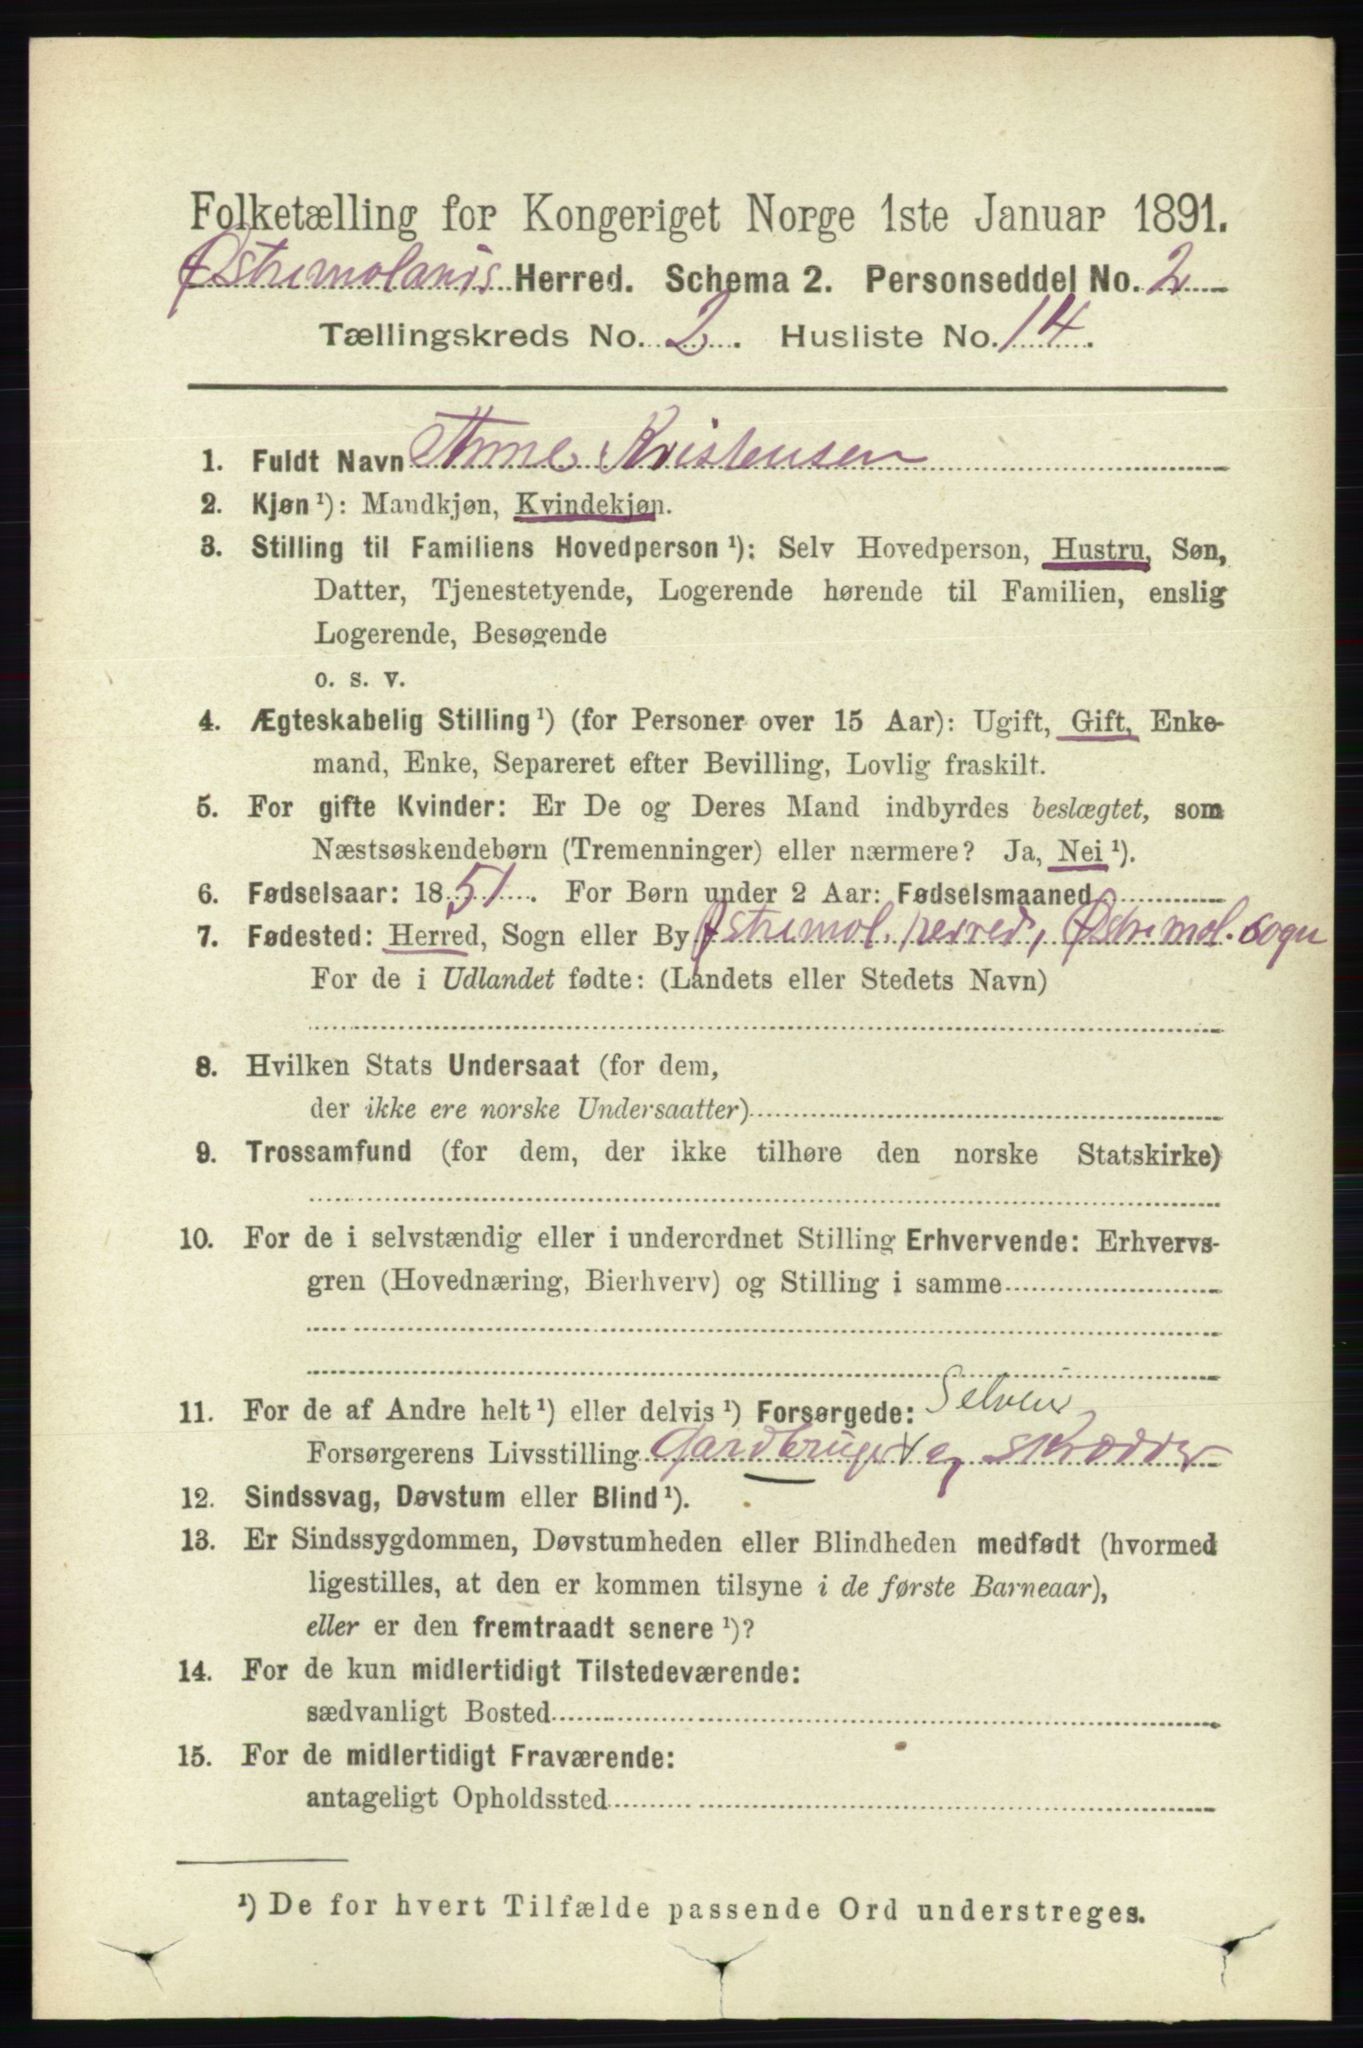 Folketælling for Kongeriget Norge 1ste Januar 1891.
Østremolands Herred. Schema 2. Personseddel No. 2
Tællingskreds No. 2. Husliste No. 14.
1. Fuldt Navn Anne Kristensen
2. Kjøn ¹): Mandkjøn, Kvindekjøn.
3. Stilling til Familiens Hovedperson ¹): Selv Hovedperson, Hustru, Søn,
Datter, Tjenestetyende, Logerende hørende til Familien, enslig
Logerende, Besøgende
o. s. v.
4. Ægteskabelig Stilling ¹) (for Personer over 15 Aar): Ugift, Gift, Enke-
mand, Enke, Separeret efter Bevilling, Lovlig fraskilt.
5. For gifte Kvinder: Er De og Deres Mand indbyrdes beslægtet, som
Næstsøskendebørn (Tremenninger) eller nærmere? Ja, Nei ¹).
6. Fødselsaar: 1851. For Børn under 2 Aar: Fødselsmaaned
7. Fødested: Herred, Sogn eller By Østremol. herred, Østremol. sogn
For de i Udlandet fødte: (Landets eller Stedets Navn)
8. Hvilken Stats Undersaat (for dem,
der ikke ere norske Undersaatter)
9. Trossamfund (for dem, der ikke tilhøre den norske Statskirke)
10. For de i selvstændig eller i underordnet Stilling Erhvervende: Erhvervs-
gren (Hovednæring, Bierhverv) og Stilling i samme
11. For de af Andre helt ¹) eller delvis ¹) Forsørgede: Selveier
Forsørgerens Livsstilling Gardbruger og skrædder
12. Sindssvag, Døvstum eller Blind ¹).
13. Er Sindssygdommen, Døvstumheden eller Blindheden medfødt (hvormed
ligestilles, at den er kommen tilsyne i de første Barneaar),
eller er den fremtraadt senere ¹)?
14. For de kun midlertidigt Tilstedeværende:
sædvanligt Bosted
15. For de midlertidigt Fraværende:
antageligt Opholdssted
¹) De for hvert Tilfælde passende Ord understreges.